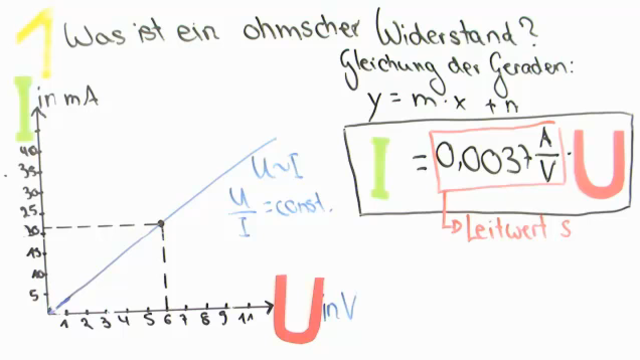 1 Was ist ein ohmscher Widerstand?
Gleichung der Geraden:
y = m · x + n
I = 0,0037 A/V · U
Leitwert S
I in mA
U ~ I
U/I = const.
40
35
30
25
20
15
10
5
1 2 3 4 5 6 7 8 9 10 11
U in V